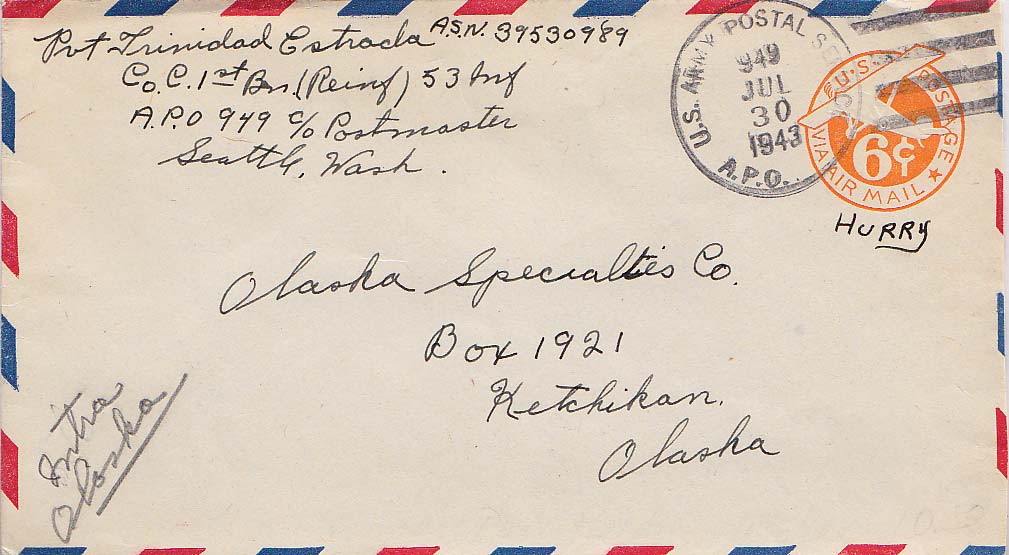 Pvt Trinidad Estrada A.S.N. 39530989
Co. C. 1st Bn. (Reinf) 53 Inf
A.P.O 949 c/o Postmaster
Seattle, Wash.
U.S. ARMY POSTAL SERVICE
949
JUL
30
1943
A.P.O.
U.S. POSTAGE
6¢
VIA AIR MAIL
HURRY
Alaska Specialties Co.
Box 1921
Ketchikan.
Alaska
Intra
Alaska